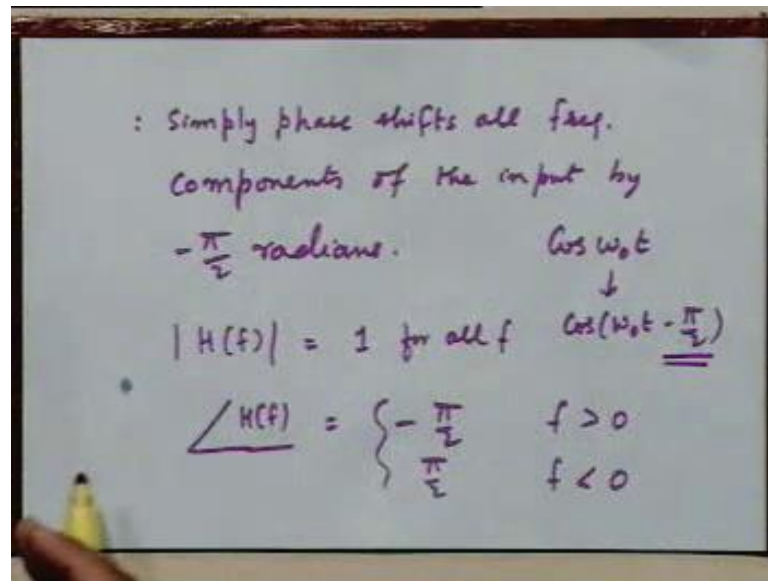 : Simply phase shifts all freq.
components of the input by
- π/2 radians.
Cos ω₀t
↓
Cos(ω₀t - π/2)
|H(f)| = 1 for all f
∠H(f) = { - π/2 f > 0
π/2 f < 0